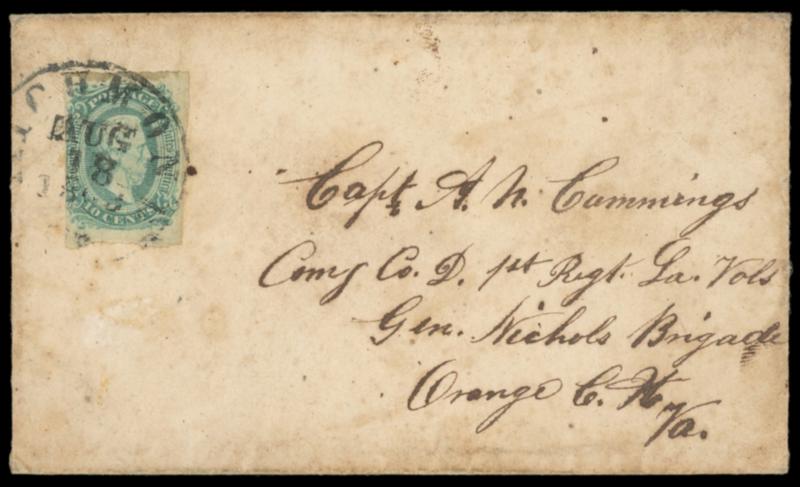 RICHMOND
AUG
18
POSTAGE
10 CENTS
Capt. A. N. Cummings
Comg Co. D. 1st Regt. La. Vols
Gen. Nichols Brigade
Orange C. H.
Va.